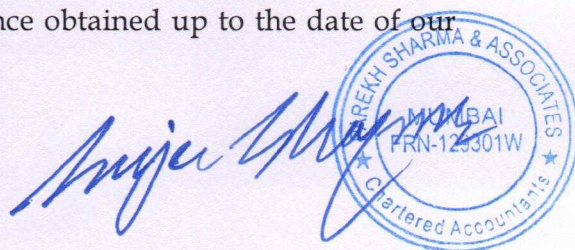 nce obtained up to the date of our
AREKH SHARMA & ASSOCIATES
MUMBAI
FRN-129301W
★ Chartered Accountants ★